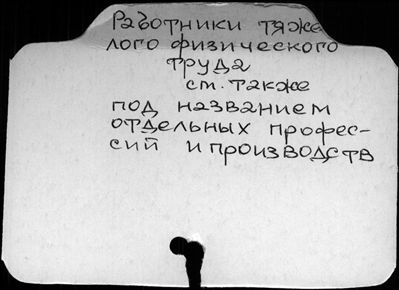 Работники тяже
лого физического
труда
см. также
под названием
отдельных профес-
сий и производств